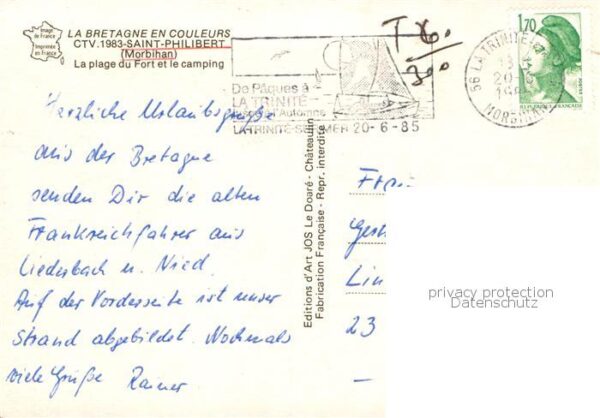 Image
de France
Imprimée
en France
LA BRETAGNE EN COULEURS
CTV.1983-SAINT-PHILIBERT
(Morbihan)
La plage du Fort et le camping
T 6
300
1,70
56 LA TRINITE
MORBIHAN
De Pâques à
LA TRINITE
Automne
LA TRINITE-SUR-MER 20-6-85
Herzliche Urlaubsgrüße
aus der Bretagne
senden Dir die alten
Frankreichfahrer aus
Liederbach u. Nied.
Auf der Vorderseite ist unser
Strand abgebildet. Nochmals
viele Grüße Rainer
Editions d'Art JOS Le Doaré - Châteaulin
Fabrication Française - Repr. interdite
Lin
23
privacy protection
Datenschutz